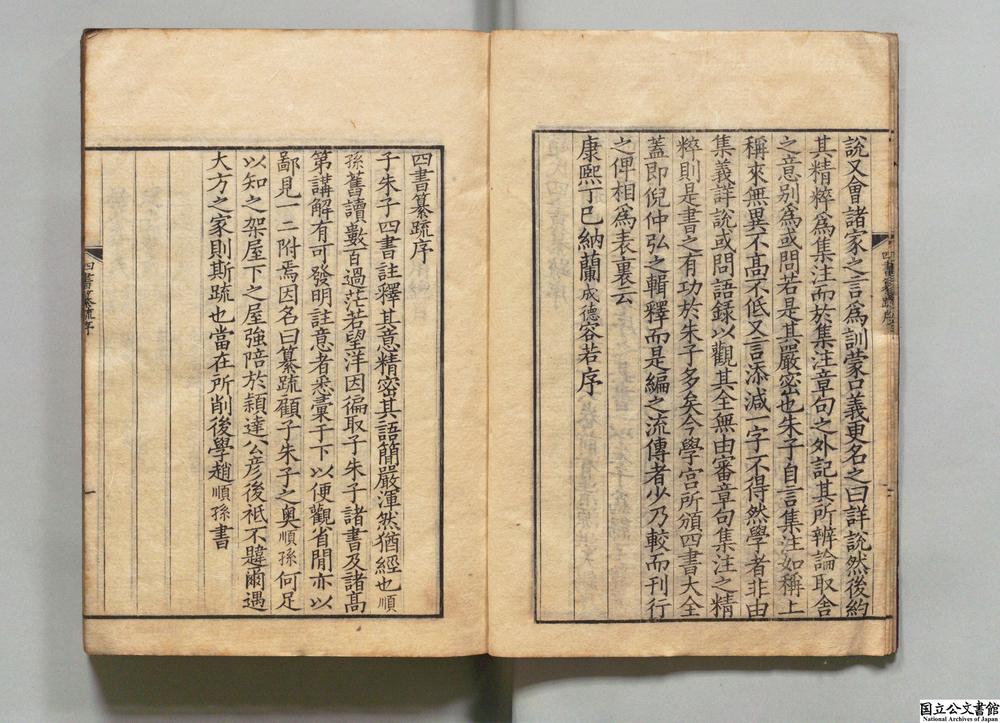 說又會諸家之言爲訓蒙口義更名之曰詳說然後約
其精粹爲集注而於集注章句之外記其所辨論取舍
之意别爲或問若是其嚴密也朱子自言集注如稱上
稱來無異不高不低又言添減一字不得然學者非由
集義詳說或問語録以觀其全無由審章句集注之精
粹則是書之有功於朱子多矣今學宫所頒四書大全
蓋即倪仲弘之輯釋而是編之流傳者少乃較而刊行
之俾相爲表裏云
康熙丁巳納蘭成德容若序
四書纂疏序
四書纂疏序
子朱子四書註釋其意精密其語簡嚴渾然猶經也順
孫舊讀數百過茫若望洋因徧取子朱子諸書及諸高
第講解有可發明註意者悉彙于下以便觀省閒亦以
鄙見一二附焉因名曰纂疏顧子朱子之奥順孫何足
以知之架屋下之屋強陪於穎達公彦後祇不韙爾遇
大方之家則斯疏也當在所削後學趙順孫書
四書纂疏序
一
国立公文書館
National Archives of Japan